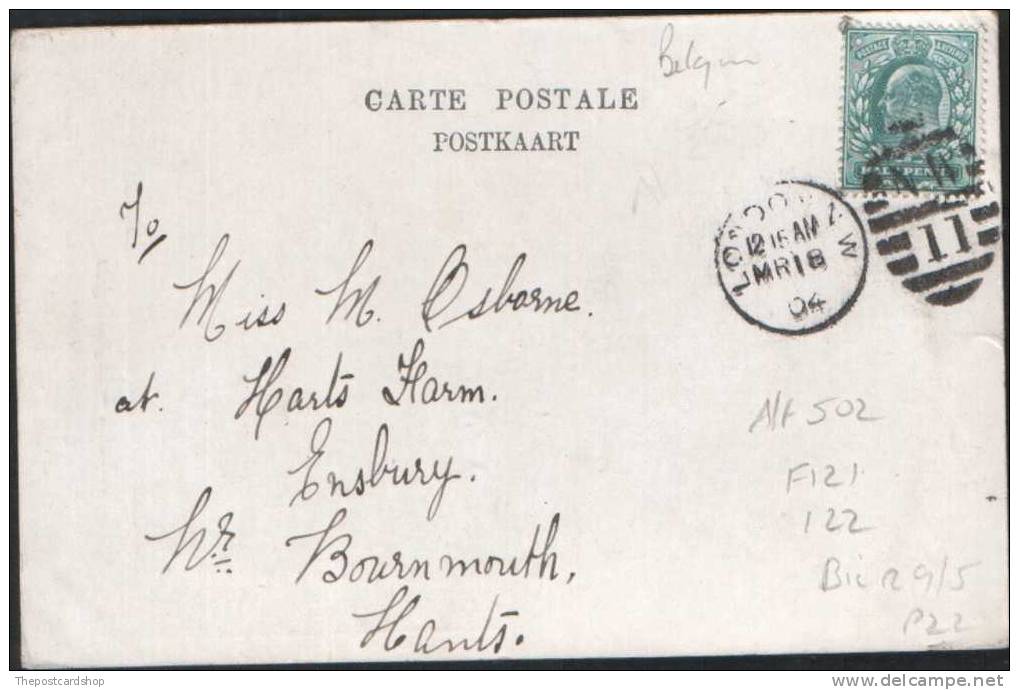 Belgium
CARTE POSTALE
POSTKAART
POSTAGE & REVENUE
HALFPENNY
LONDON N.W
12 15 AM
MR 18
04
N.W
11
To
Miss M. Osborne.
at. Harts Farm.
Ensbury.
Nr. Bournmouth,
Hants.
Alt 502
F121
122
Bic R 9/5
P22
©Thepostcardshop
delcampe.net